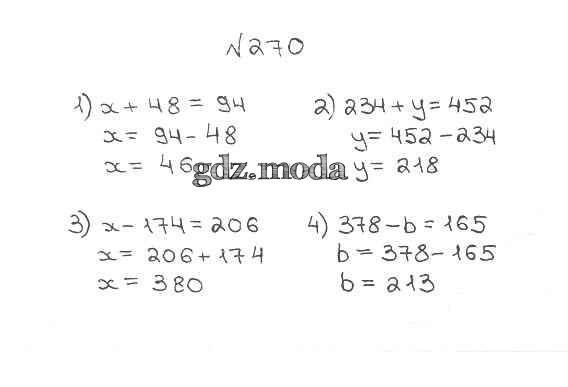 №270
1) x + 48 = 94
x = 94 - 48
x = 46
2) 234 + y = 452
y = 452 - 234
y = 218
gdz.moda
3) x - 174 = 206
x = 206 + 174
x = 380
4) 378 - b = 165
b = 378 - 165
b = 213